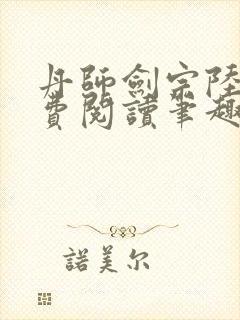 丹師劍宗陸
費閱讀筆趣
諾美尔